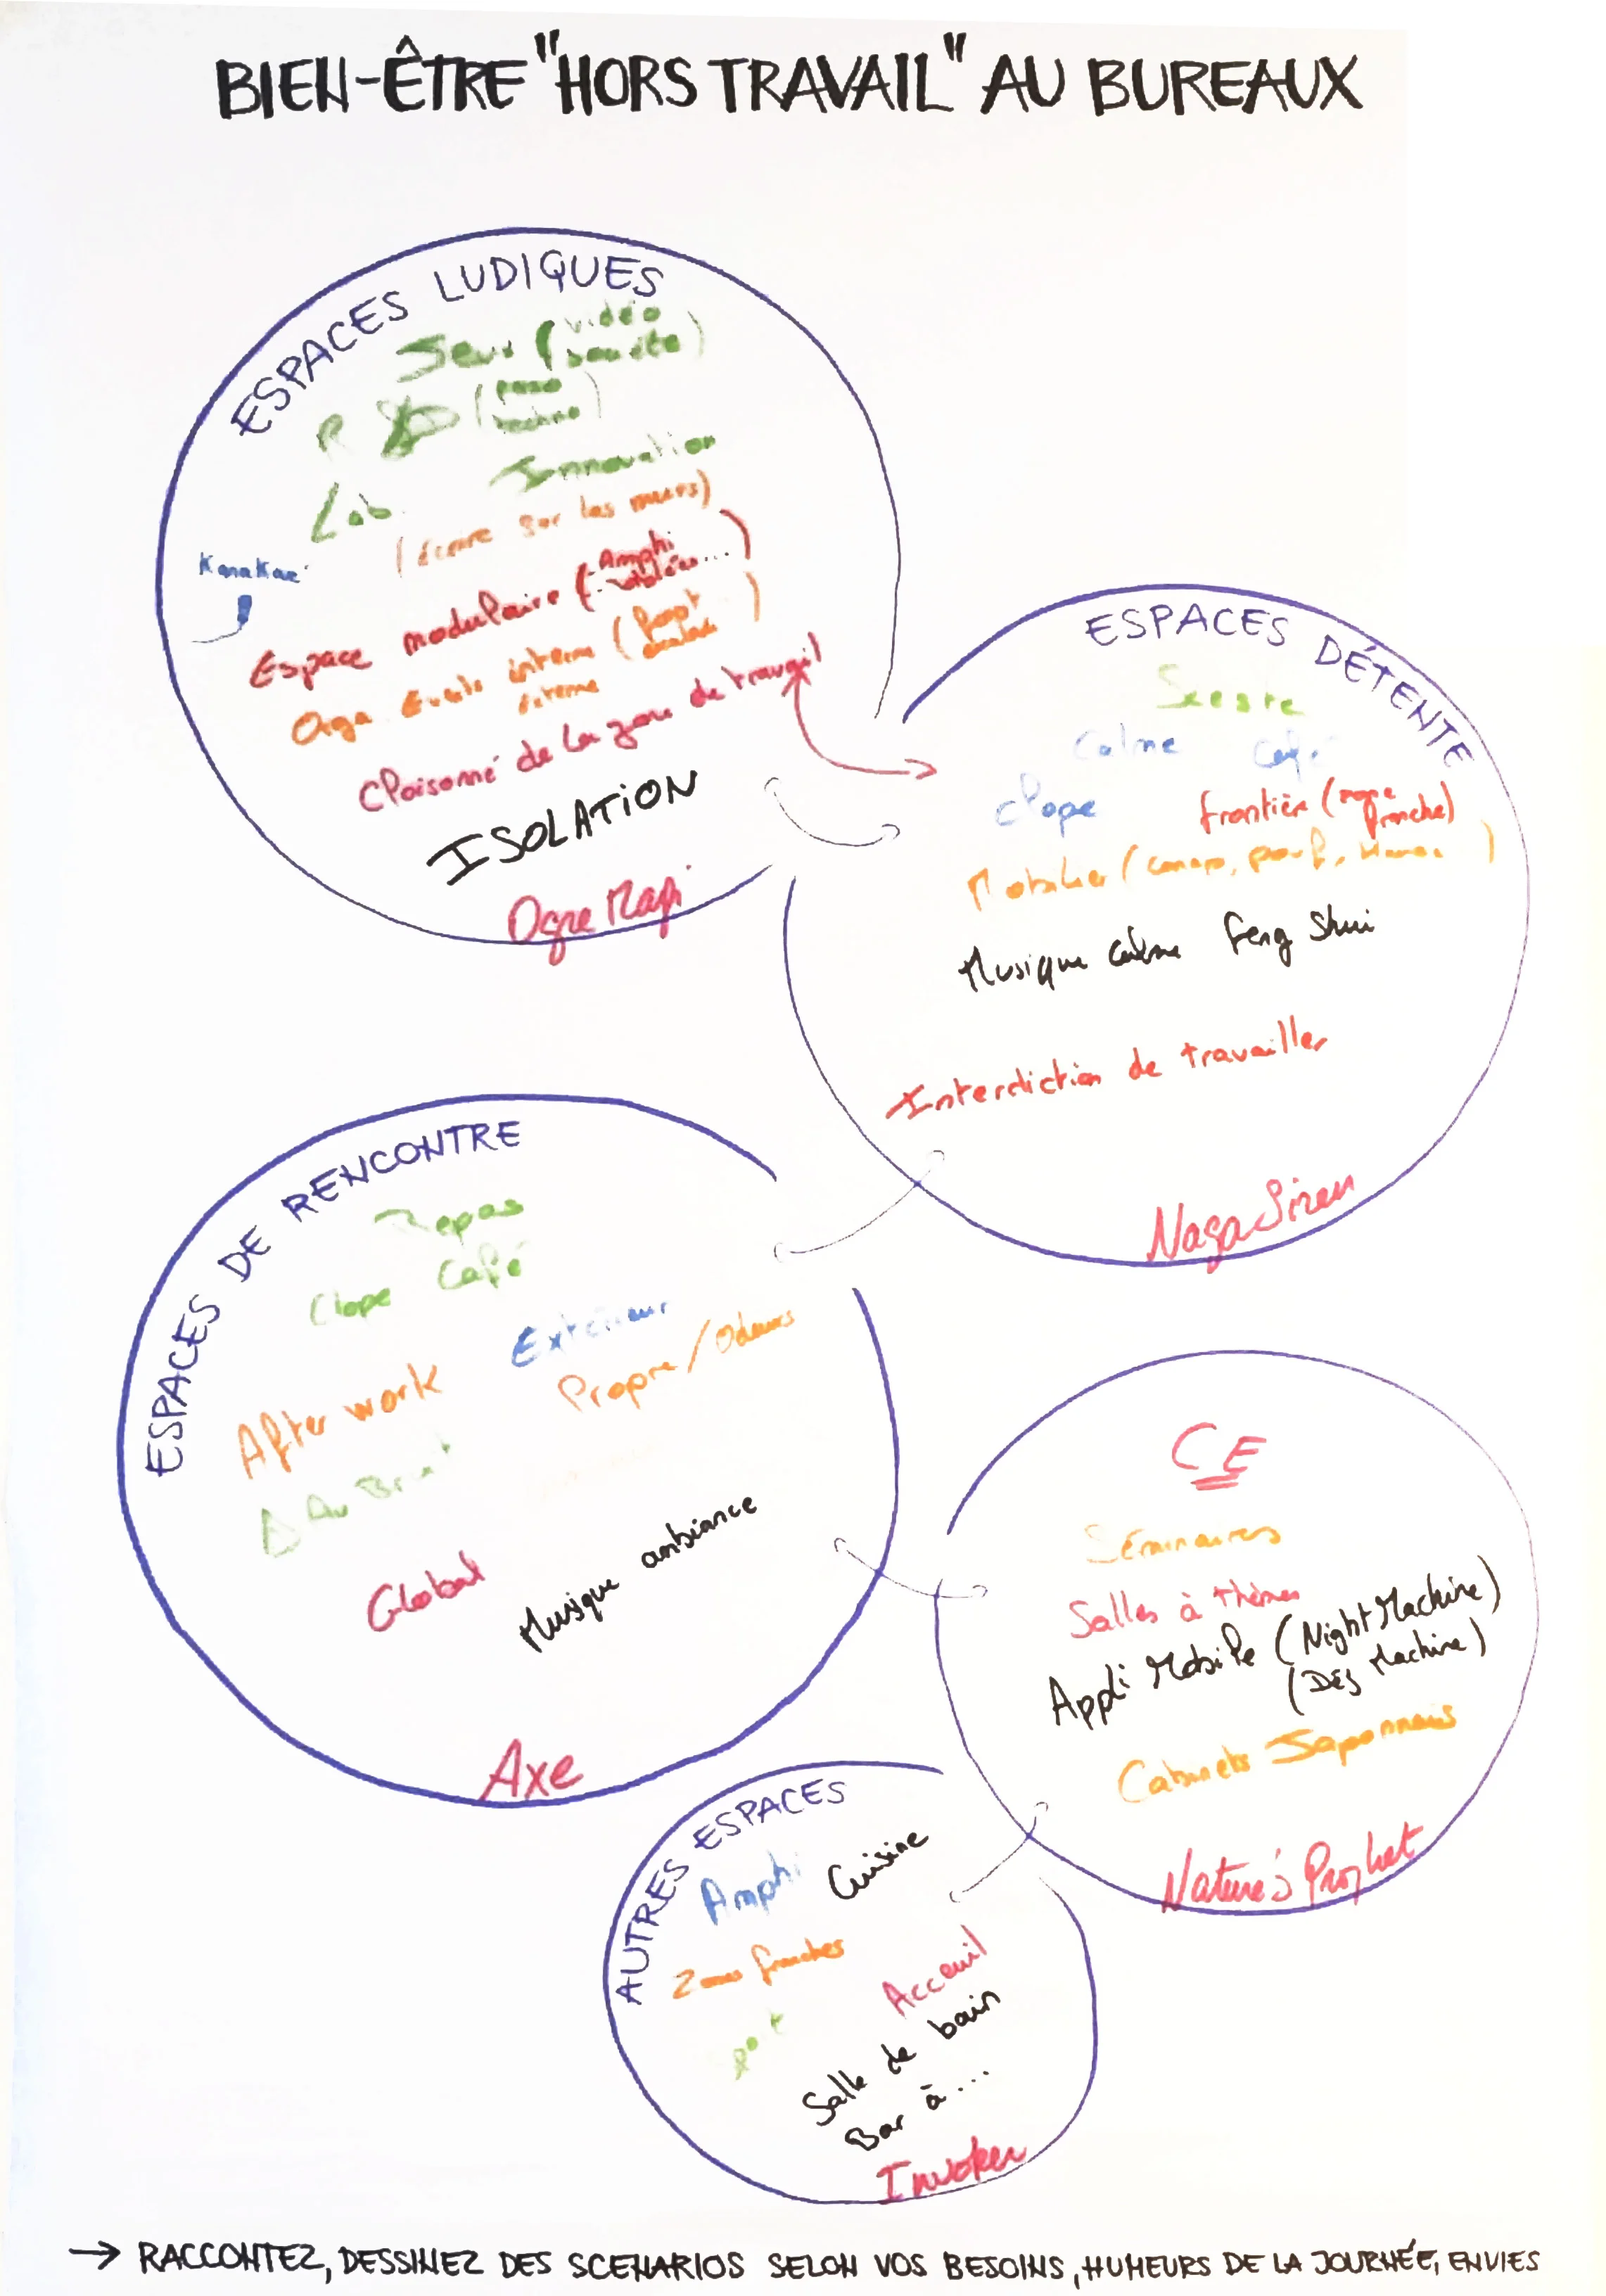 BIEN-ÊTRE "HORS TRAVAIL" AU BUREAUX
ESPACES LUDIQUES
Jeux (vidéo
société)
R&D (
techno)
Lab Innovation
(écrire sur les murs)
Karaké
Espace modulaire (Amphi
...)
Orga Events interne (
externe
Cloisonné de la zone de travail
ISOLATION
Ogre Magi
ESPACES DÉTENTE
Sieste
Calme Café
Clope frontière (zone
franche)
Mobilier (canap, pouf, )
Musique calme Feng Shui
Interdiction de travailler
Naga Siren
ESPACES DE RENCONTRE
Repas
Clope Café
Extérieur
After work Propre/Odeurs
Au Bruit
Global Musique ambiance
Axe
CE
Séminaires
Salles à thèmes
Appli Mobile (Night Machine)
(Dej Machine)
Cabinets Japonnais
Nature's Prophet
AUTRES ESPACES
Amphi Cuisine
Zones franches
Acceuil
Salle de bain
Bar à ...
Invoker
→ RACCONTEZ, DESSINEZ DES SCENARIOS SELON VOS BESOINS, HUMEURS DE LA JOURNÉE, ENVIES